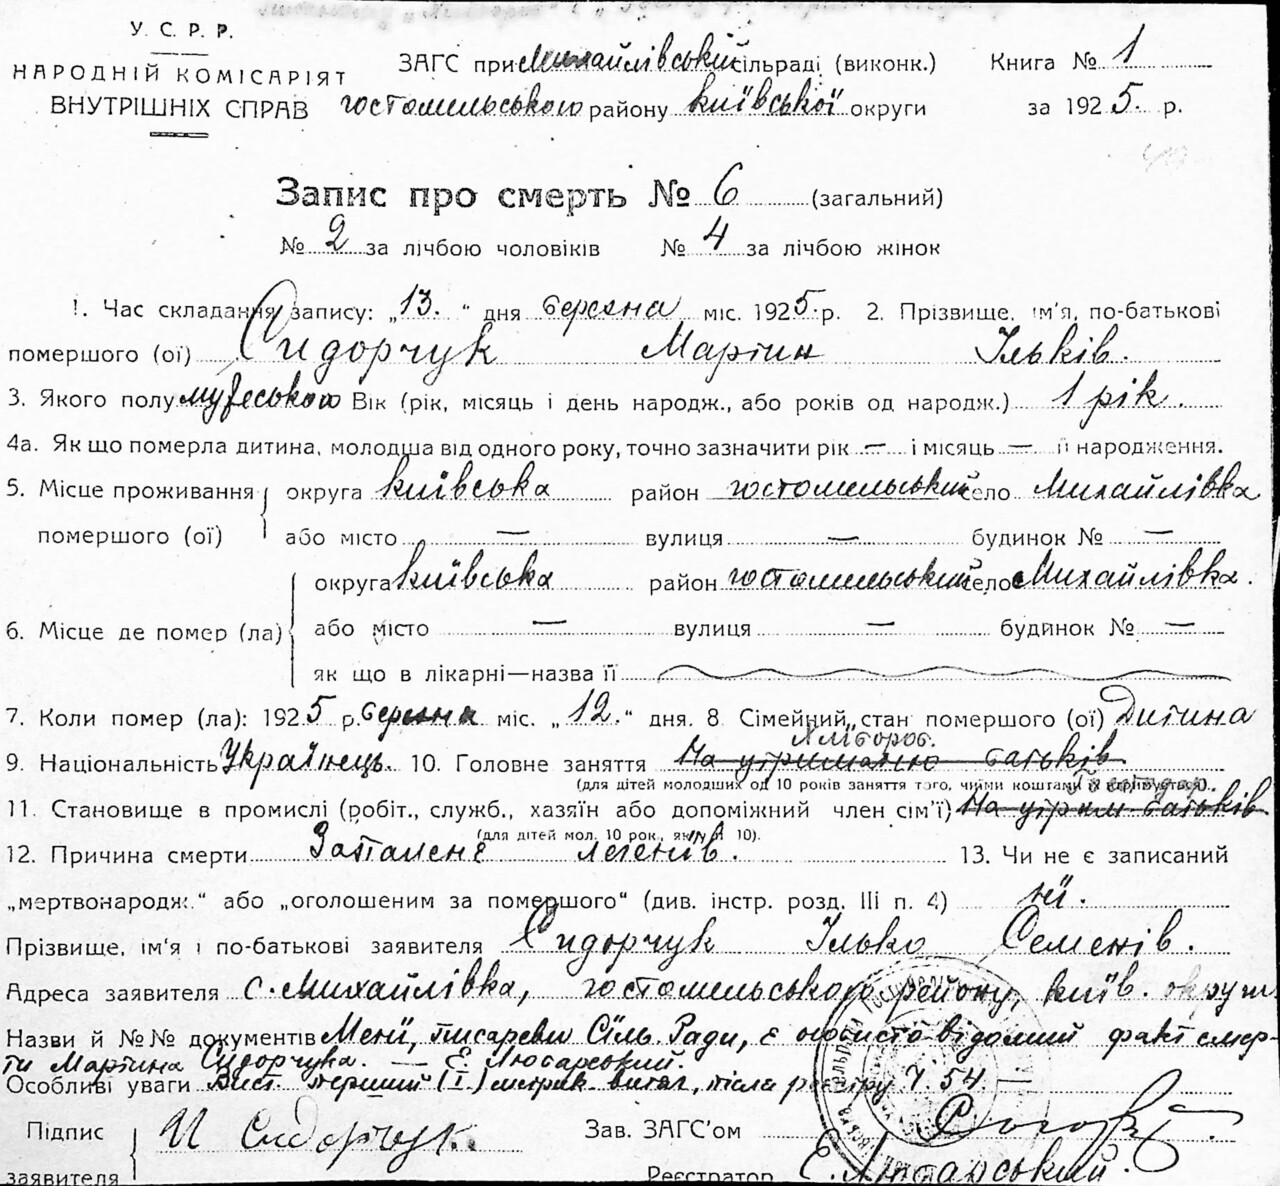 У. С. Р. Р.
НАРОДНІЙ КОМІСАРІЯТ
ВНУТРІШНІХ СПРАВ
ЗАГС при Михайлівській сільраді (виконк.) Книга № 1
гостомельського району київської округи за 1925 р.
Запис про смерть № 6 (загальний)
№ 2 за лічбою чоловіків № 4 за лічбою жінок
1. Час складання запису: „13.“ дня березня міс. 1925 р. 2. Прізвище, ім'я, по-батькові
помершого (ої) Сидорчук Мартин Ільків.
3. Якого полу мужеського Вік (рік, місяць і день народж., або років од народж.) 1 рік.
4а. Як що померла дитина, молодша від одного року, точно зазначити рік — і місяць — її народження.
5. Місце проживання помершого (ої) округа київська район гостомельський село Михайлівка
або місто — вулиця — будинок № —
6. Місце де помер (ла) округа київська район гостомельський село Михайлівка.
або місто — вулиця — будинок № —
як що в лікарні—назва її
7. Коли помер (ла): 1925 р. березня міс. „12.“ дня. 8 Сімейний стан помершого (ої) Дитина
Хлібороб.
9. Національність Українець. 10. Головне заняття На утриманню батьків
(для дітей молодших од 10 років заняття того, чиїми коштами
11. Становище в промислі (робіт., служб., хазяїн або допоміжний член сім'ї) На утрим. батьків
(для дітей мол. 10 рок., як 10).
12. Причина смерти Запаленє легенів. 13. Чи не є записаний
„мертвонародж.“ або „оголошеним за помершого“ (див. інстр. розд. III п. 4) ні.
Прізвище, ім'я і по-батькові заявителя Сидорчук Ілько Семенів.
Адреса заявителя с. Михайлівка, гостомельського району київ. округи
Назви й №№ документів Мені, писареви Сіль Ради, є особисто відомий факт смер-
ти Мартина Сидорчука. — Є. Лютарський.
Особливі уваги перший (I) витяг, після реєстру Ч. 54 —
Підпис заявителя И Сидорчук.
Зав. ЗАГС'ом
Реєстратор Є. Лютарський.